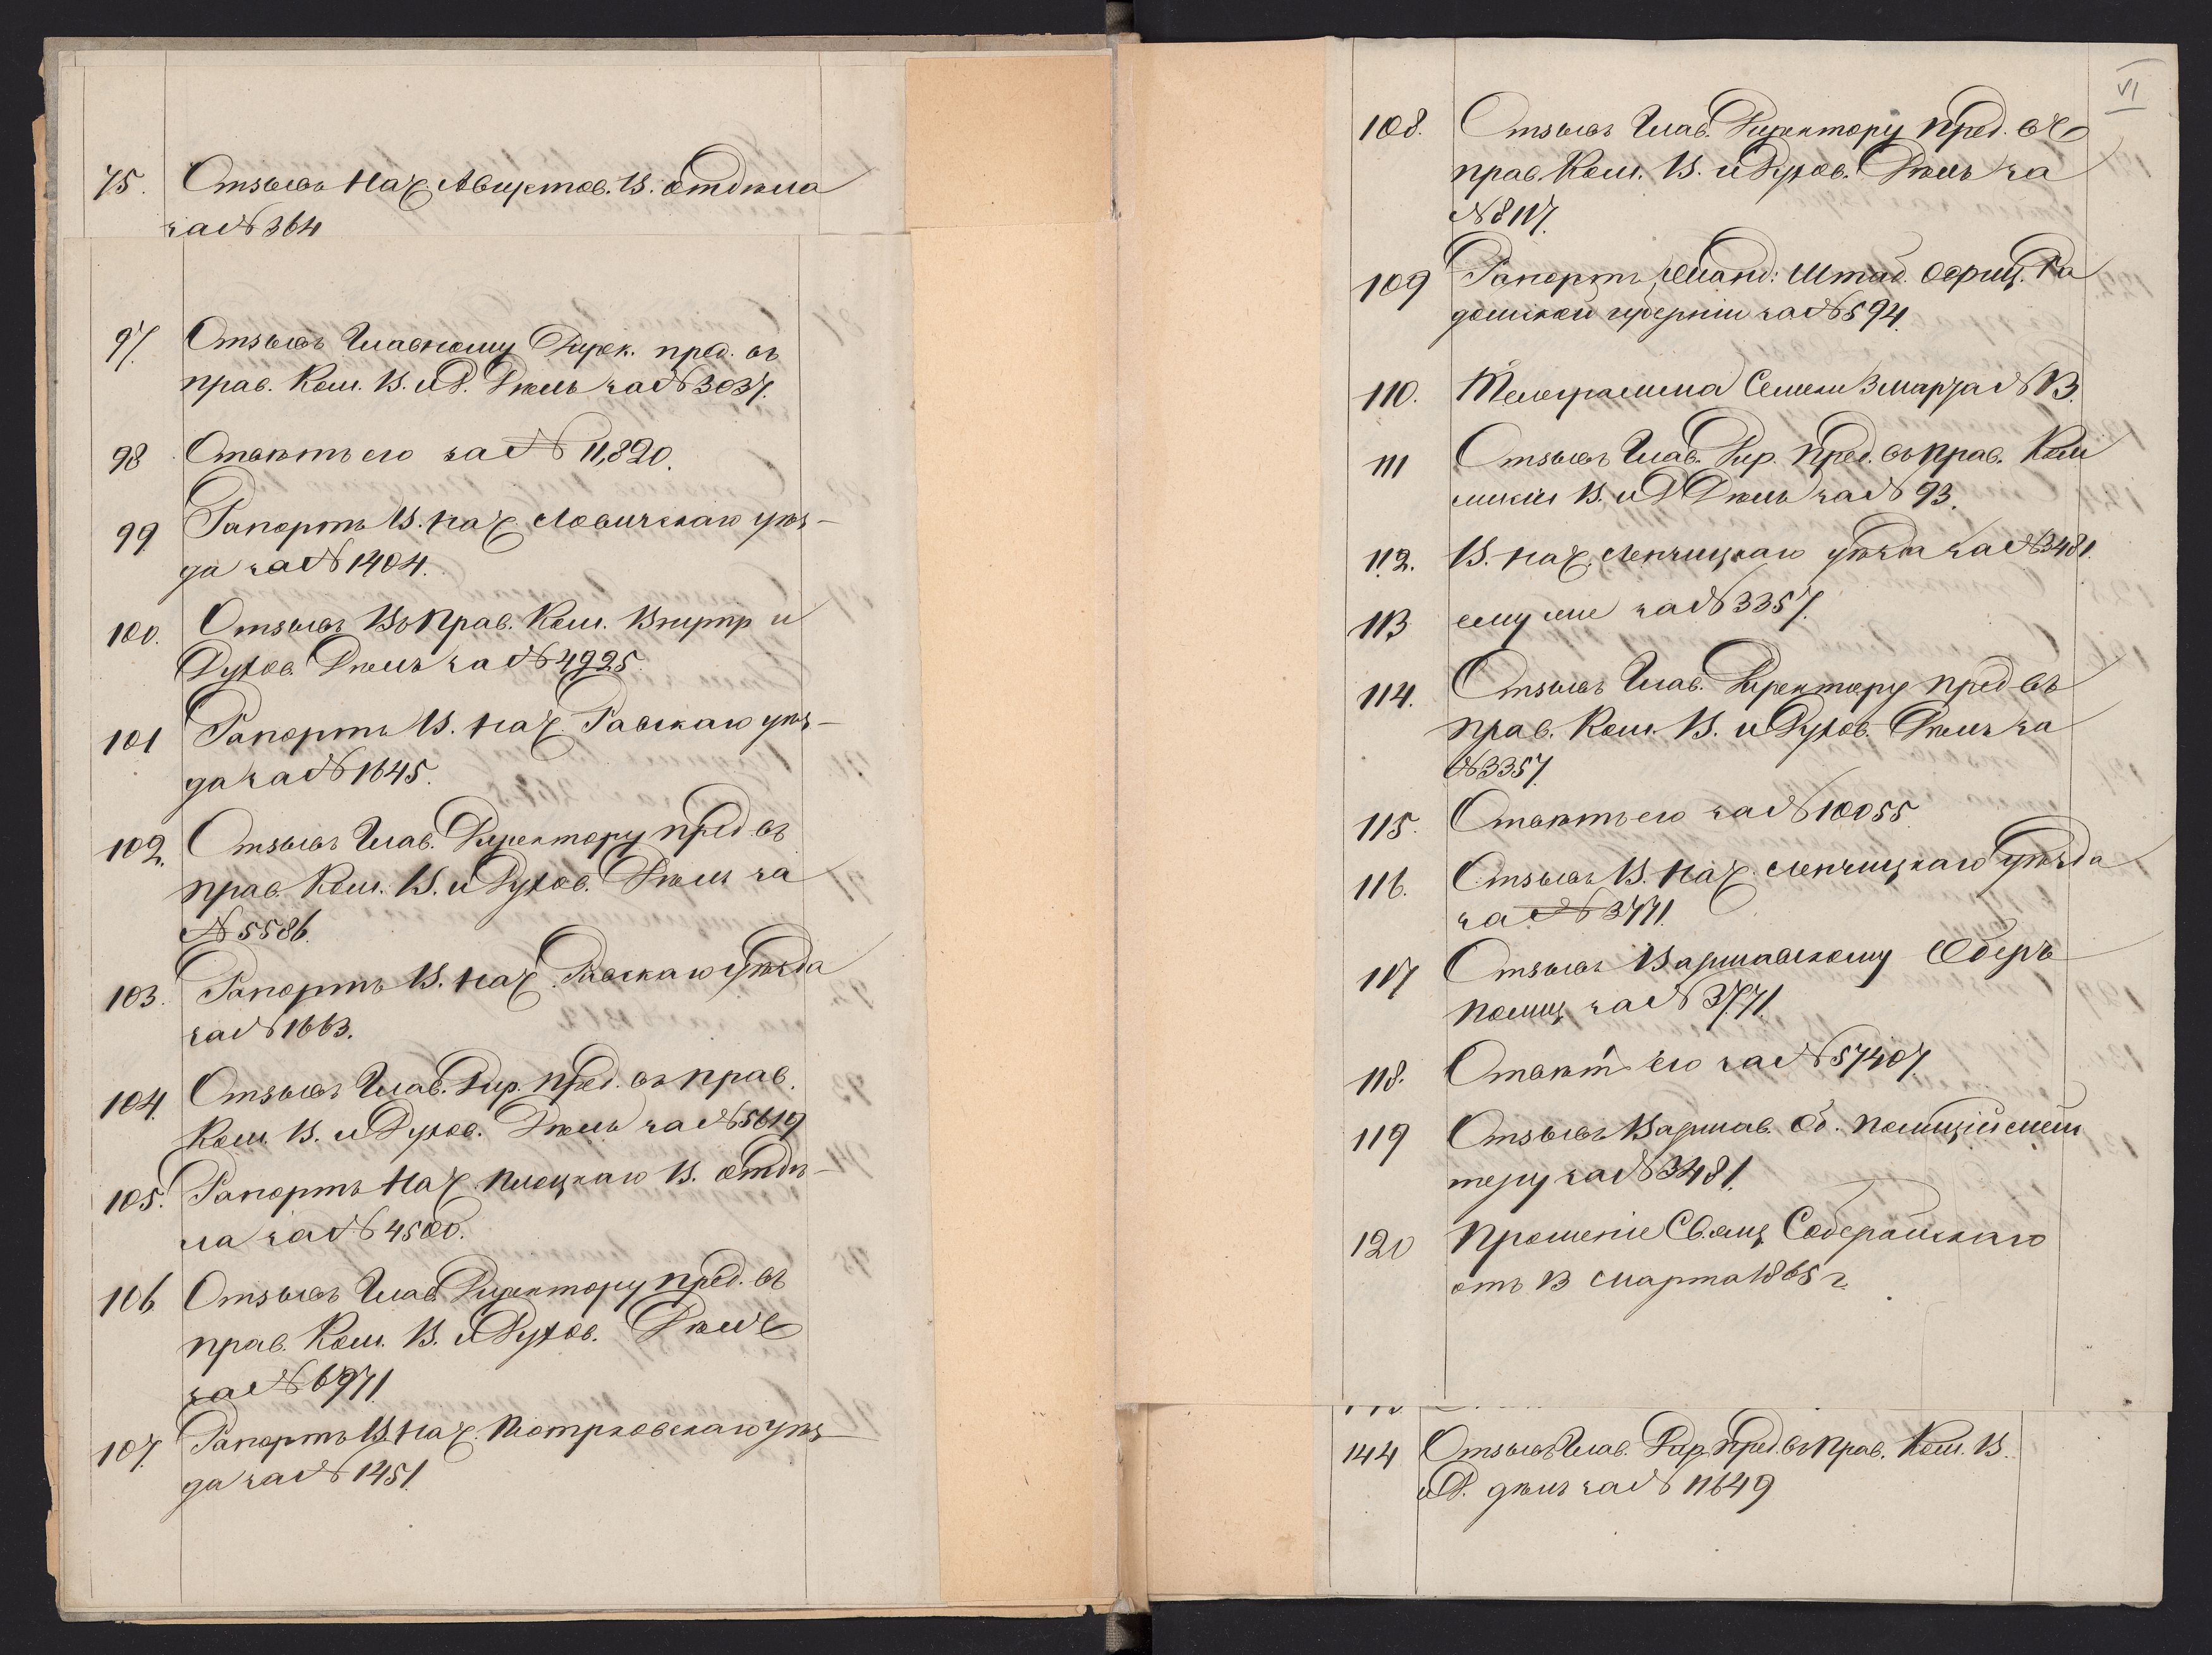 75. Отзывъ Нач. Августов. В. отдѣла
за № 364
97. Отзывъ Главному Дирек. пред. въ
прав. Ком. В. и Д. Дѣлъ за № 3037.
98 Отвѣтъ его за № 11,820.
99 Рапортъ В. нач. Ловичскаго уѣз-
да за № 1404.
100. Отзывъ Въ Прав. Ком. Внутр и
Духов. Дѣлъ за № 4925.
101 Рапортъ В. нач. Равскаго уѣз-
да за № 1645.
102. Отзывъ Глав. Директору пред въ
прав. Ком. В. и Духов. Дѣлъ за
№ 5586.
103. Рапортъ В. нач. Равскаго уѣзда
за № 1663.
104. Отзывъ Глав. Дир. пред. въ прав.
Ком. В. и Духов. Дѣлъ за № 5619
105. Рапортъ Нач. Плоцкаго В. отдѣ-
ла за № 4500.
106 Отзывъ Глав. Директору пред. въ
прав. Ком. В. и Духов. Дѣлъ
за № 6971
107. Рапортъ В. Нач. Піотрковскаго уѣз-
да за № 1451.
VI
108. Отзывъ Глав. Директору пред. въ
прав. Ком. В. и Духов. Дѣлъ за
№ 8117.
109 Рапортъ Жанд: Штаб. Офиц. Ра
домской губерніи за № 594.
110. Телеграмма 3 мар. за № 13.
111 Отзывъ Глав. Дир. пред. въ прав. Ком
мисіи В. и Д Дѣлъ за № 93.
112. В. нач. Ленчицкаго уѣзда за № 3481.
113 ему же за № 3357.
114. Отзывъ Глав. Директору пред въ
прав. Ком. В. и Духов. Дѣлъ за
№ 3357.
115. Отвѣтъ его за № 10055.
116. Отзывъ В. Нач. Ленчицкаго уѣзда
за № 3771.
117 Отзывъ Варшавскому Оберъ
Полиц за № 3771.
118. Отвѣт его за № 57407
119 Отзывъ Варшав. Об. Полиційсмей
теру за № 3481.
120 Прошеніе Свящ.
отъ 13 Марта 1865 г.
144 Отзывъ Глав. Дир. пред. въ прав. Ком. В.
и Д. дѣлъ за № 11649